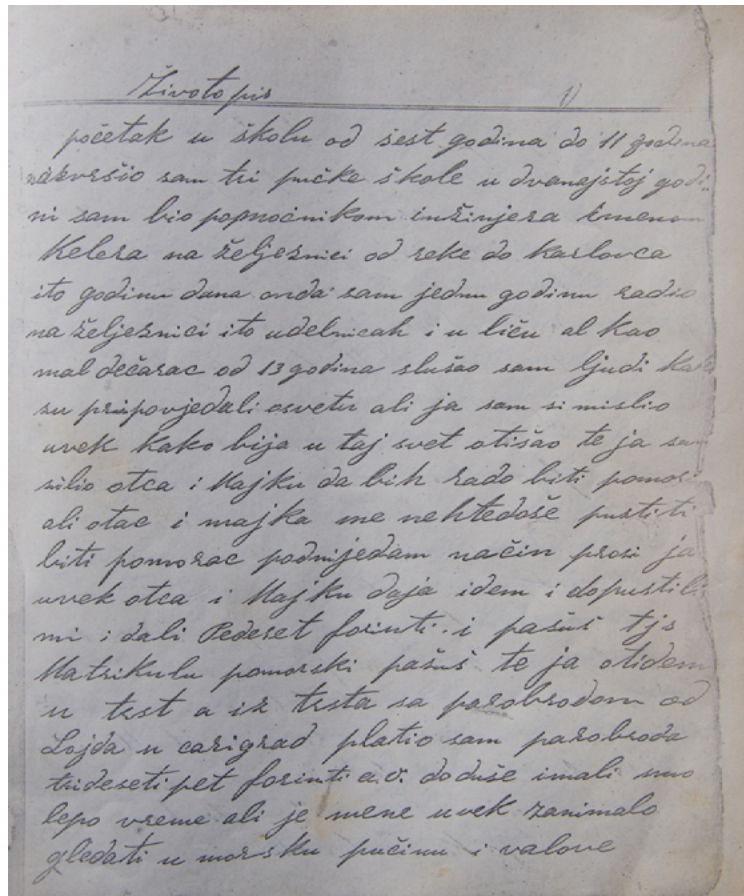 Životopis 1)
početak u školu od šest godina do 11 godina
nazvršio sam tri pučke škole u dvanajstoj godi-
ni sam bio popnoćnikom inžinjera imenom
Kelera na željeznici od reke do Karlovca
ito godinu dana onda sam jednu godinu radio
na željeznici ito udelnicah i u liču al kao
mal dečarac od 13 godina slušao sam ljudi kako
su pripovjedali osvetu ali ja sam si mislio
uvek kako bija u taj svet otišao te ja sam
silio otca i Majku da bih rado biti pomor
ali otac i majka me nehtedoše pustiti
biti pomorac podnijedam način prosi ja
uvek otca i Majku daja idem i dopustili
mi i dali Pedeset forinti. i pašuš tjs
Matrikulu pomorski pašuš te ja otidem
u trst a iz trsta sa parobrodom od
Lojda u carigrad platio sam parobroda
trideseti pet forinti a.v. doduše imali smo
lepo vreme ali je mene uvek zanimalo
gledati u morsku pučinu i valove